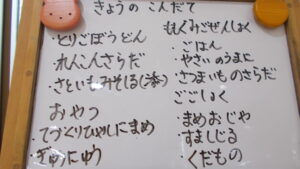 きょうの こんだて
・とりごぼうどん
・れんこんさらだ
・さといもみそしる(添)
おやつ
・てづくりひやしにまめ
・ぎゅうにゅう
もぐもぐごぜんしょく
・ごはん
・やさいのうまに
・さつまいものさらだ
ごごしょく
・まめおじや
・すましじる
くだもの